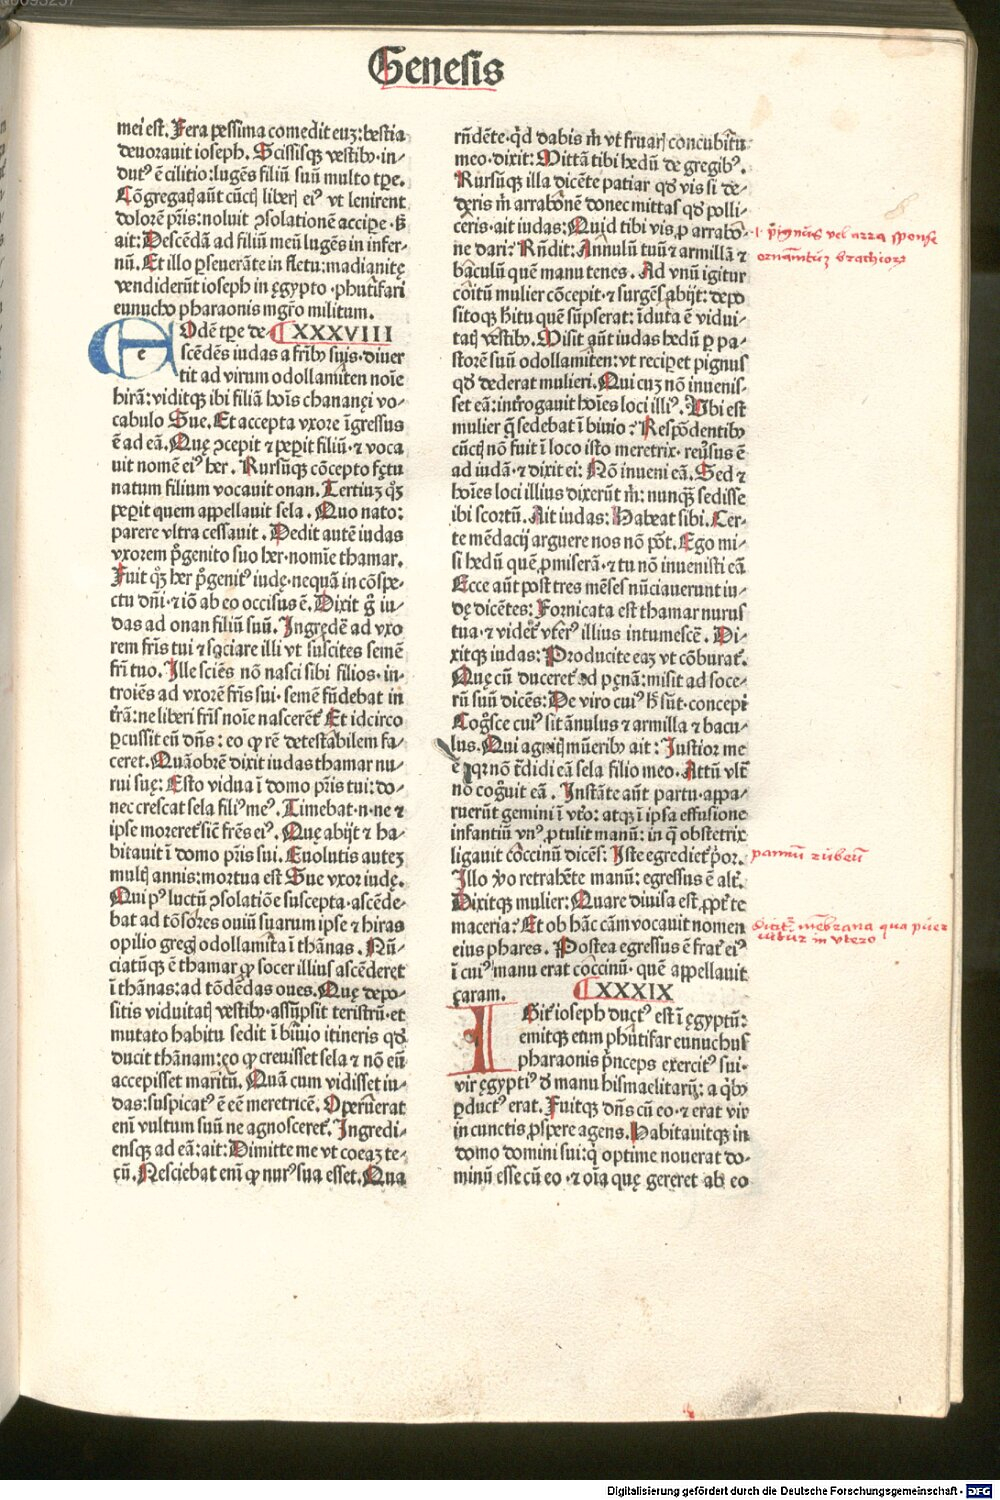 Genesis
mei est. Fera pessima comedit euȝ: bestia
deuorauit ioseph. Scissisqꝫ vestibꝰ· in-
dutꝰ ē cilitio: lugēs filiū suū multo tꝑe.
Cōgregatꝭ aūt cūctꝭ liberꝭ eiꝰ vt lenirent
dolorē pr̄is: noluit ↄsolationē accipe· sꝫ
ait: Descēdā ad filiū meū lugēs in infer-
nū. Et illo ꝑseuerāte in fletu: madianitę
vendiderūt ioseph in ęgypto · phutifari
eunucho pharaonis mgro militum.
EOdē tꝑe de- XXXVIII
scēdēs iudas a fr̄ibꝰ suis· diuer
tit ad virum odollamiten noīe
hirā: viditqꝫ ibi filiā hoīs chananęi vo-
cabulo Sue. Et accepta vxore īgressus
ē ad eā. Quę ↄcepit ⁊ peꝑit filiū· ⁊ voca
uit nomē eiꝰ her. Rursūqꝫ cōcepto fętu
natum filium vocauit onan. Tertiuȝ qꝫ
peꝑit quem appellauit sela. Quo nato:
parere vltra cessauit. Dedit autē iudas
vxorem pͥgenito suo her· nomīe thamar.
Fuit qꝫ her pͥgenitꝰ iudę· nequā in cōspe-
ctu dn̄i· ⁊ iō ab eo occisus ē. Dixit gͦ iu-
das ad onan filiū suū. Ingredē ad vxo
rem fr̄is tui ⁊ sociare illi vt suscites semē
fr̄i tuo. Ille sciēs nō nasci sibi filios· in-
troiēs ad vxorē fr̄is sui· semē fūdebat in
tr̄ā: ne liberi fr̄is noīe nascerēt᷑ Et idcirco
ꝑcussit eū dn̄s: eo ꝙ rē detestabilem fa-
ceret. Quāobrē dixit iudas thamar nu-
rui suę: Esto vidua ī domo pr̄is tui: do-
nec crescat sela filiꝰ meꝰ. Timebat· n· ne ⁊
ipse moreret᷑ sic̄ fr̄es eiꝰ. Quę abijt ⁊ ha-
bitauit ī domo pr̄is sui. Euolutis auteȝ
multꝭ annis: mortua est Sue vxor iudę.
Qui pꝰ luctū ↄsolatiōe suscepta· ascēde-
bat ad tōsores ouiū suarum ipse ⁊ hiras
opilio gregꝭ odollamita ī thānas. Nū-
ciatūqꝫ ē thamar ꝙ socer illius ascēderet
ī thānas: ad tōdēdas oues. Quę depo-
sitis viduitatꝭ vestibꝰ· assūpsit teristrū· et
mutato habitu sedit ī biuio itineris qđ
ducit thānam: eo ꝙ creuisset sela ⁊ nō eū
accepisset maritū. Quā cum vidisset iu-
das: suspicatꝰ ē eē meretricē. Operuerat
eni vultum suū ne agnosceret᷑. Ingredi-
ensqꝫ ad eā: ait: Dimitte me vt coeaȝ te-
cū. Nesciebat eni ꝙ nurꝰ sua esset. Qua
rn̄dēte· qͥd dabis m̄ vt fruarꝭ concubitu
meo· dixit: Mittā tibi hedū de gregibꝰ.
Rursūqꝫ illa dicēte patiar qđ vis si de-
deris m̄ arrabonē donec mittas qđ polli-
ceris· ait iudas: Quid tibi vis ꝓ arrabo-
ne dari? Rn̄dit: Annulū tuū ⁊ armillā ⁊
baculū quē manu tenes. Ad vnū igitur
coitū mulier cōcepit· ⁊ surgēs abijt: depo
sitoqꝫ hitu quē sūpserat: īduta ē vidui-
tatꝭ vestibꝰ. Misit aūt iudas hedū ꝑ pa-
storē suū odollamiten: vt reciꝑet pignus
qđ dederat mulieri. Qui cuȝ nō inuenis-
set eā: interrogauit hoīes loci illiꝰ. Vbi est
mulier q̄ sedebat ī biuio? Respōdentibꝰ
cūctꝭ nō fuit ī loco isto meretrix· reuersus ē
ad iudā· ⁊ dixit ei: Nō inueni eā. Sed ⁊
hoīes loci illius dixerūt m̄: nunqꝫ sedisse
ibi scortū. Ait iudas: Habeat sibi. Cer-
te mēdacij arguere nos nō pōt. Ego mi-
si hedū quē ꝓmiserā· ⁊ tu nō inuenisti eā
Ecce aūt post tres mēses nūciauerunt iu-
dę dicētes: Fornicata est thamar nurus
tua· ⁊ videt᷑ vterꝰ illius intumescē. Di-
xitqꝫ iudas: Producite eaȝ vt cōburat᷑.
Quę cū duceret᷑ ad pęnā: misit ad soce-
rū suū dicēs: De viro cuiꝰ h̄ sūt· concepi
Cogͦsce cuiꝰ sit ānulus ⁊ armilla ⁊ bacu-
lus. Qui agnitꝭ mūeribꝰ ait: Iustior me
ē· qr nō tradidi eā sela filio meo. Attn̄ vlt̄
nō cogͦuit eā. Instāte aūt partu· appa-
ruerūt gemini ī vtō: atqꝫ ī ipsa effusione
infantiū vnꝰ ꝓtulit manū: in qͣ obstetrix
ligauit coccinū dicēs: Iste egrediet᷑ pͥor.
Illo ꝟo retrahēte manū: egressus ē alt̄.
Dixitqꝫ mulier: Quare diuisa est ꝓpt̄ te
maceria? Et ob hāc cām vocauit nomen
eius phares. Postea egressus ē frat̄ eiꝰ
ī cuiꝰ manu erat coccinū· quē appellauit
çaram. XXXIX
IGit᷑ ioseph ductꝰ est ī ęgyptū:
emitqꝫ eum phutifar eunuchus
pharaonis pͥnceps exercitꝰ sui·
vir ęgyptiꝰ đ manu hismaelitarū: a qͥbꝰ
ꝑductꝰ erat. Fuitqꝫ dn̄s cū eo· ⁊ erat vir
in cunctis ꝓspere agens. Habitauitqꝫ in
domo domini sui: qͥ optime nouerat do-
minū esse cū eo· ⁊ oīa quę gereret ab eo
.i. pignus vel arra sponse
ornamētuȝ brachioꝝ
pannū rubeū
dicit᷑ mēbrana qua puer
in vtero
Digitalisierung gefördert durch die Deutsche Forschungsgemeinschaft - DFG